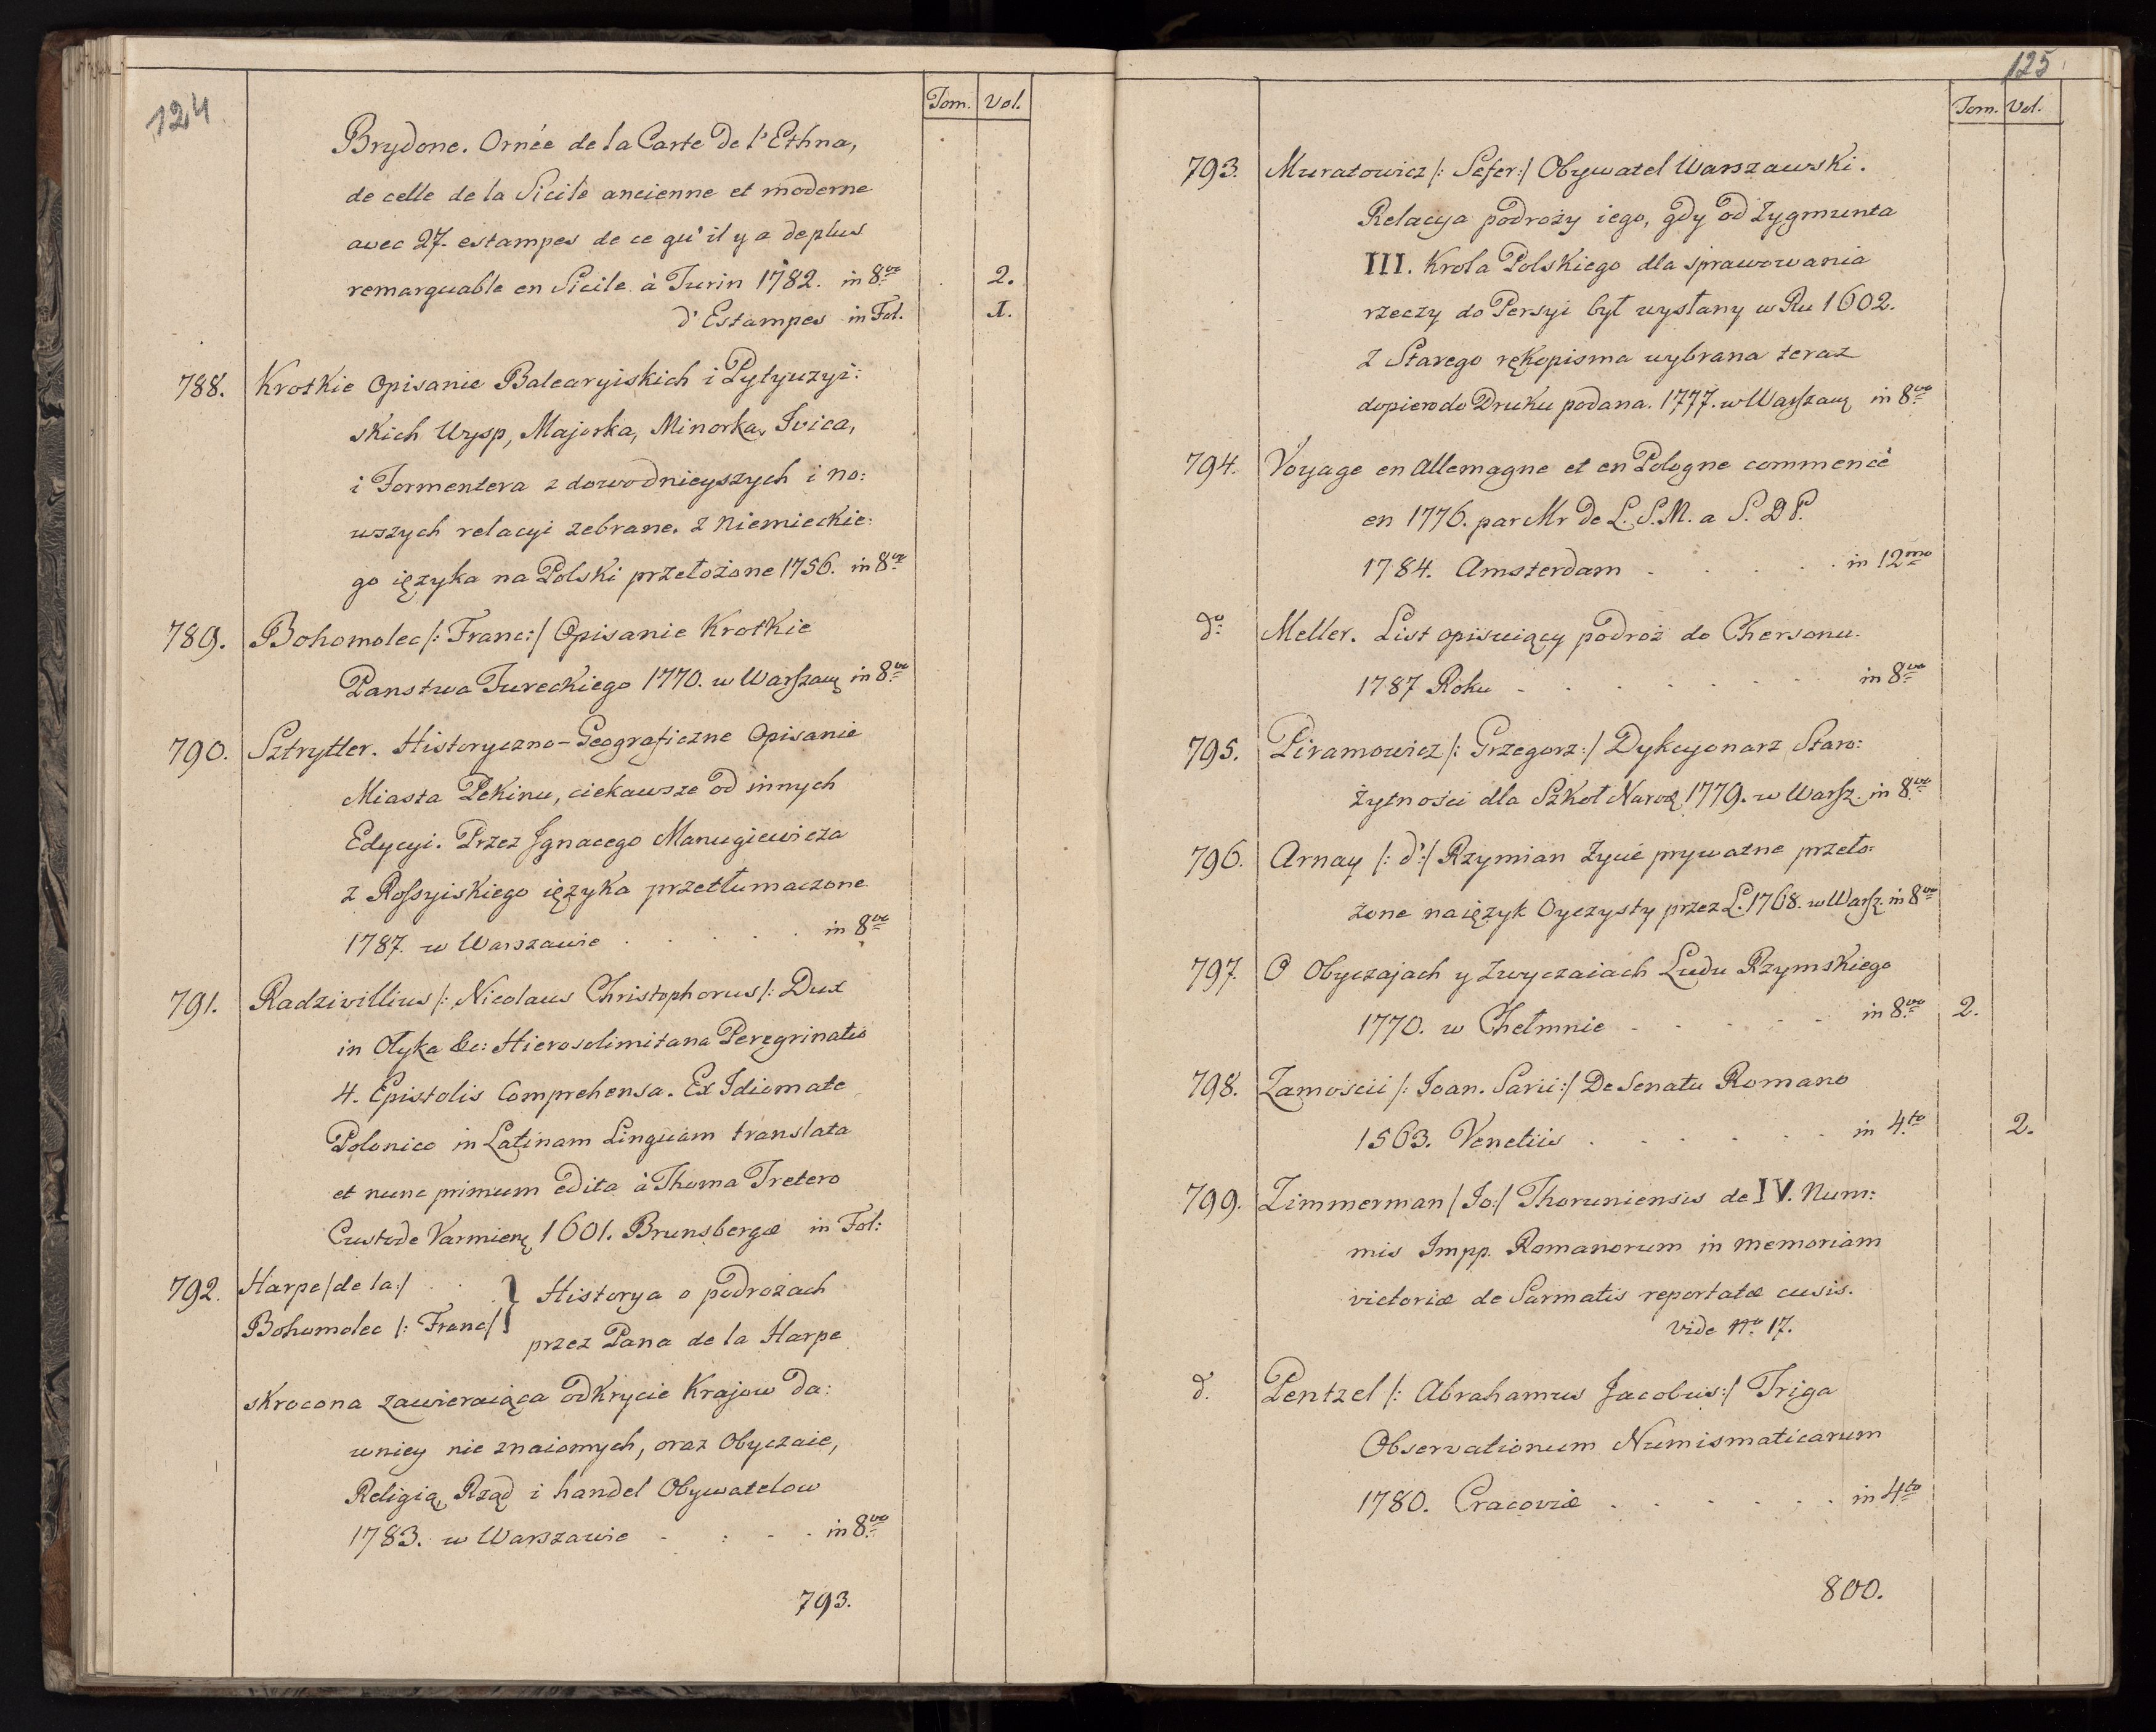 124
Tom. Vol.
Brydone. Ornée de la Carte de l'Ethna,
de celle de la Sicile ancienne et moderne
avec 27. estampes de ce qu'il y a de plus
remarquable en Sicile à Turin 1782. in 8vo 2.
d'Estampes in Fol. I.
788. Krotkie Opisanie Balearyiskich i Pytyuzyi:
skich Wysp, Majorka, Minorka, Ivica,
i Formentera z dowodnieyszych i no:
wszych relacyi zebrane. z Niemieckie:
go ięzyka na Polski przełożone 1756. in 8vo
789. Bohomolec /: Franc:/ Opisanie Krotkie
Panstwa Tureckiego 1770. w Warszawę in 8vo
790. Sztrytter. Historyczno-Geograficzne Opisanie
Miasta Pekinu, ciekawsze od innych
Edycyi. Przez Jgnacego Manugiewicza
z Rossyiskiego ięzyka przetłumaczone
1787. w Warszawie . . . . . in 8vo
791. Radzivillius /: Nicolaus Christophorus /: Dux
in Olyka &c: Hierosolimitana Peregrinatio
4. Epistolis Comprehensa. Ex Idiomate
Polonico in Latinam Linguam translata
et nunc primum edita à Thoma Tretero
Custode Varmienę 1601. Brunsbergæ in Fol:
792. Harpe /de la:/ . . } Historya o podrożach
Bohomolec /: Franc:/ } przez Pana de la Harpe
skrocona zawieraiąca odkrycie Krajow da:
wniey nie znaiomych, oraz Obyczaie,
Religią, Rząd i handel Obywatelow
1783. w Warszawie - : - . in 8vo
793.
125
Tom. Vol.
793. Muratowicz /: Sefer:/ Obywatel Warszawski.
Relacya podroży iego, gdy od Zygmunta
III. Krola Polskiego dla sprawowania
rzeczy do Persyi był wysłany w Ru 1602.
z Starego rękopisma wybrana teraz
dopiero do Druku podana. 1777. w Warszawę in 8vo
794. Voyage en Allemagne et en Pologne commencé
en 1776. par Mr de L. S. M. a S. D P.
1784. Amsterdam . . . . . in 12mo
do Meller. List opisuiący podroż do Chersonu.
1787 Roku - . . . . . - in 8vo
795. Piramowicz /: Grzegorz:/ Dykcyonarz Staro:
żytności dla Szkoł Narod 1779. w Warsz. in 8vo
796. Arnay /: d':/ Rzymian Zycie prywatne przeło:
żone na ięzyk Oyczysty przez L. 1768. w Warsz. in 8vo
797. O Obyczajach y Zwyczaiach Ludu Rzymskiego
1770. w Chełmnie - . - . - in 8vo 2.
798. Zamoscii /: Joan. Sarii:/ De Senatu Romano
1563. Venetiis . . . . . . in 4to 2.
799. Zimmerman /Jo:/ Thoruniensis de IV. Num:
mis Impp. Romanorum in memoriam
victoriæ de Sarmatis reportatæ cusis.
vide No 17.
d. Pentzel /: Abrahamus Jacobus:/ Triga
Observationum Numismaticarum
1780. Cracoviæ . . . . . . in 4to
800.